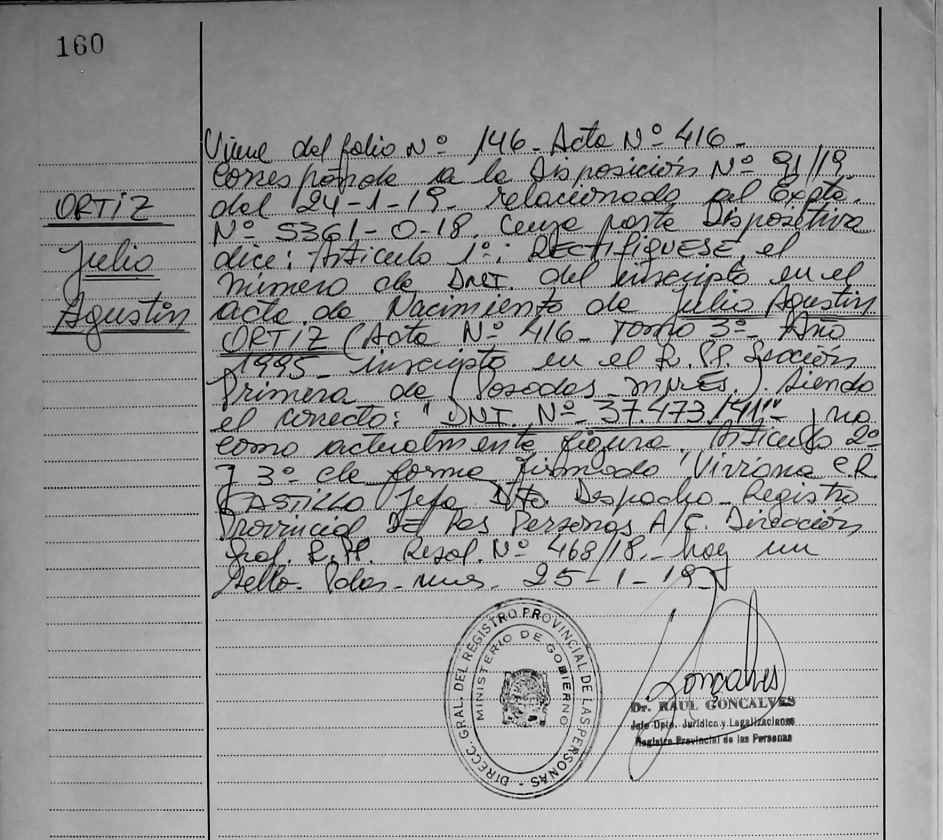 160
ORTIZ
Julio
Agustín
Viene del folio Nº 146- Acta Nº 416-
Corresponde a la Disposición Nº 91/19
del 24-1-19- relacionado al Expte.
Nº 5361-O-18. Cuya parte Dispositiva
dice: Artículo 1º: RECTIFIQUESE, el
número de DNI. del inscripto en el
acta de Nacimiento de Julio Agustín
ORTIZ (Acta Nº 416- Tomo 3º- Año
1995- inscripto en el R.PP. Sección
Primera de (Posadas mnes.) siendo
el correcto: "DNI. Nº 37.473.141"- no
como actualmente figura. Artículo 2º
y 3º de forma firmado Viviana C.R.
CASTILLO Jefa Dto. Despacho- Registro
Provincial DE las Personas A/C. Dirección
Gral. R.PP. Resol. Nº 468/18.- hay un
sello. Pdas- mnes. 25-1-19
DIRECC. GRAL. DEL REGISTRO PROVINCIAL DE LAS PERSONAS -
MINISTERIO DE GOBIERNO
Gonçalves
Dr. RAUL GONCALVES
Jefe Dpto. Jurídico y Legalizaciones
Registro Provincial de las Personas